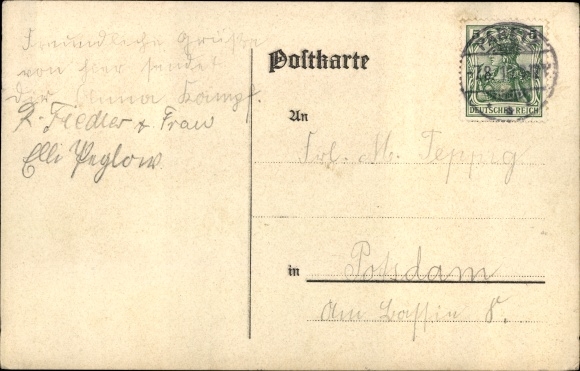 Freundliche Grüße
von hier sendet
Dir Anna Kampf.
R. Fiedler & Frau
Elli Peglow
Postkarte
An
Frl. M. Teppig
in Potsdam
Am Bassin 8.
5
DEUTSCHES REICH